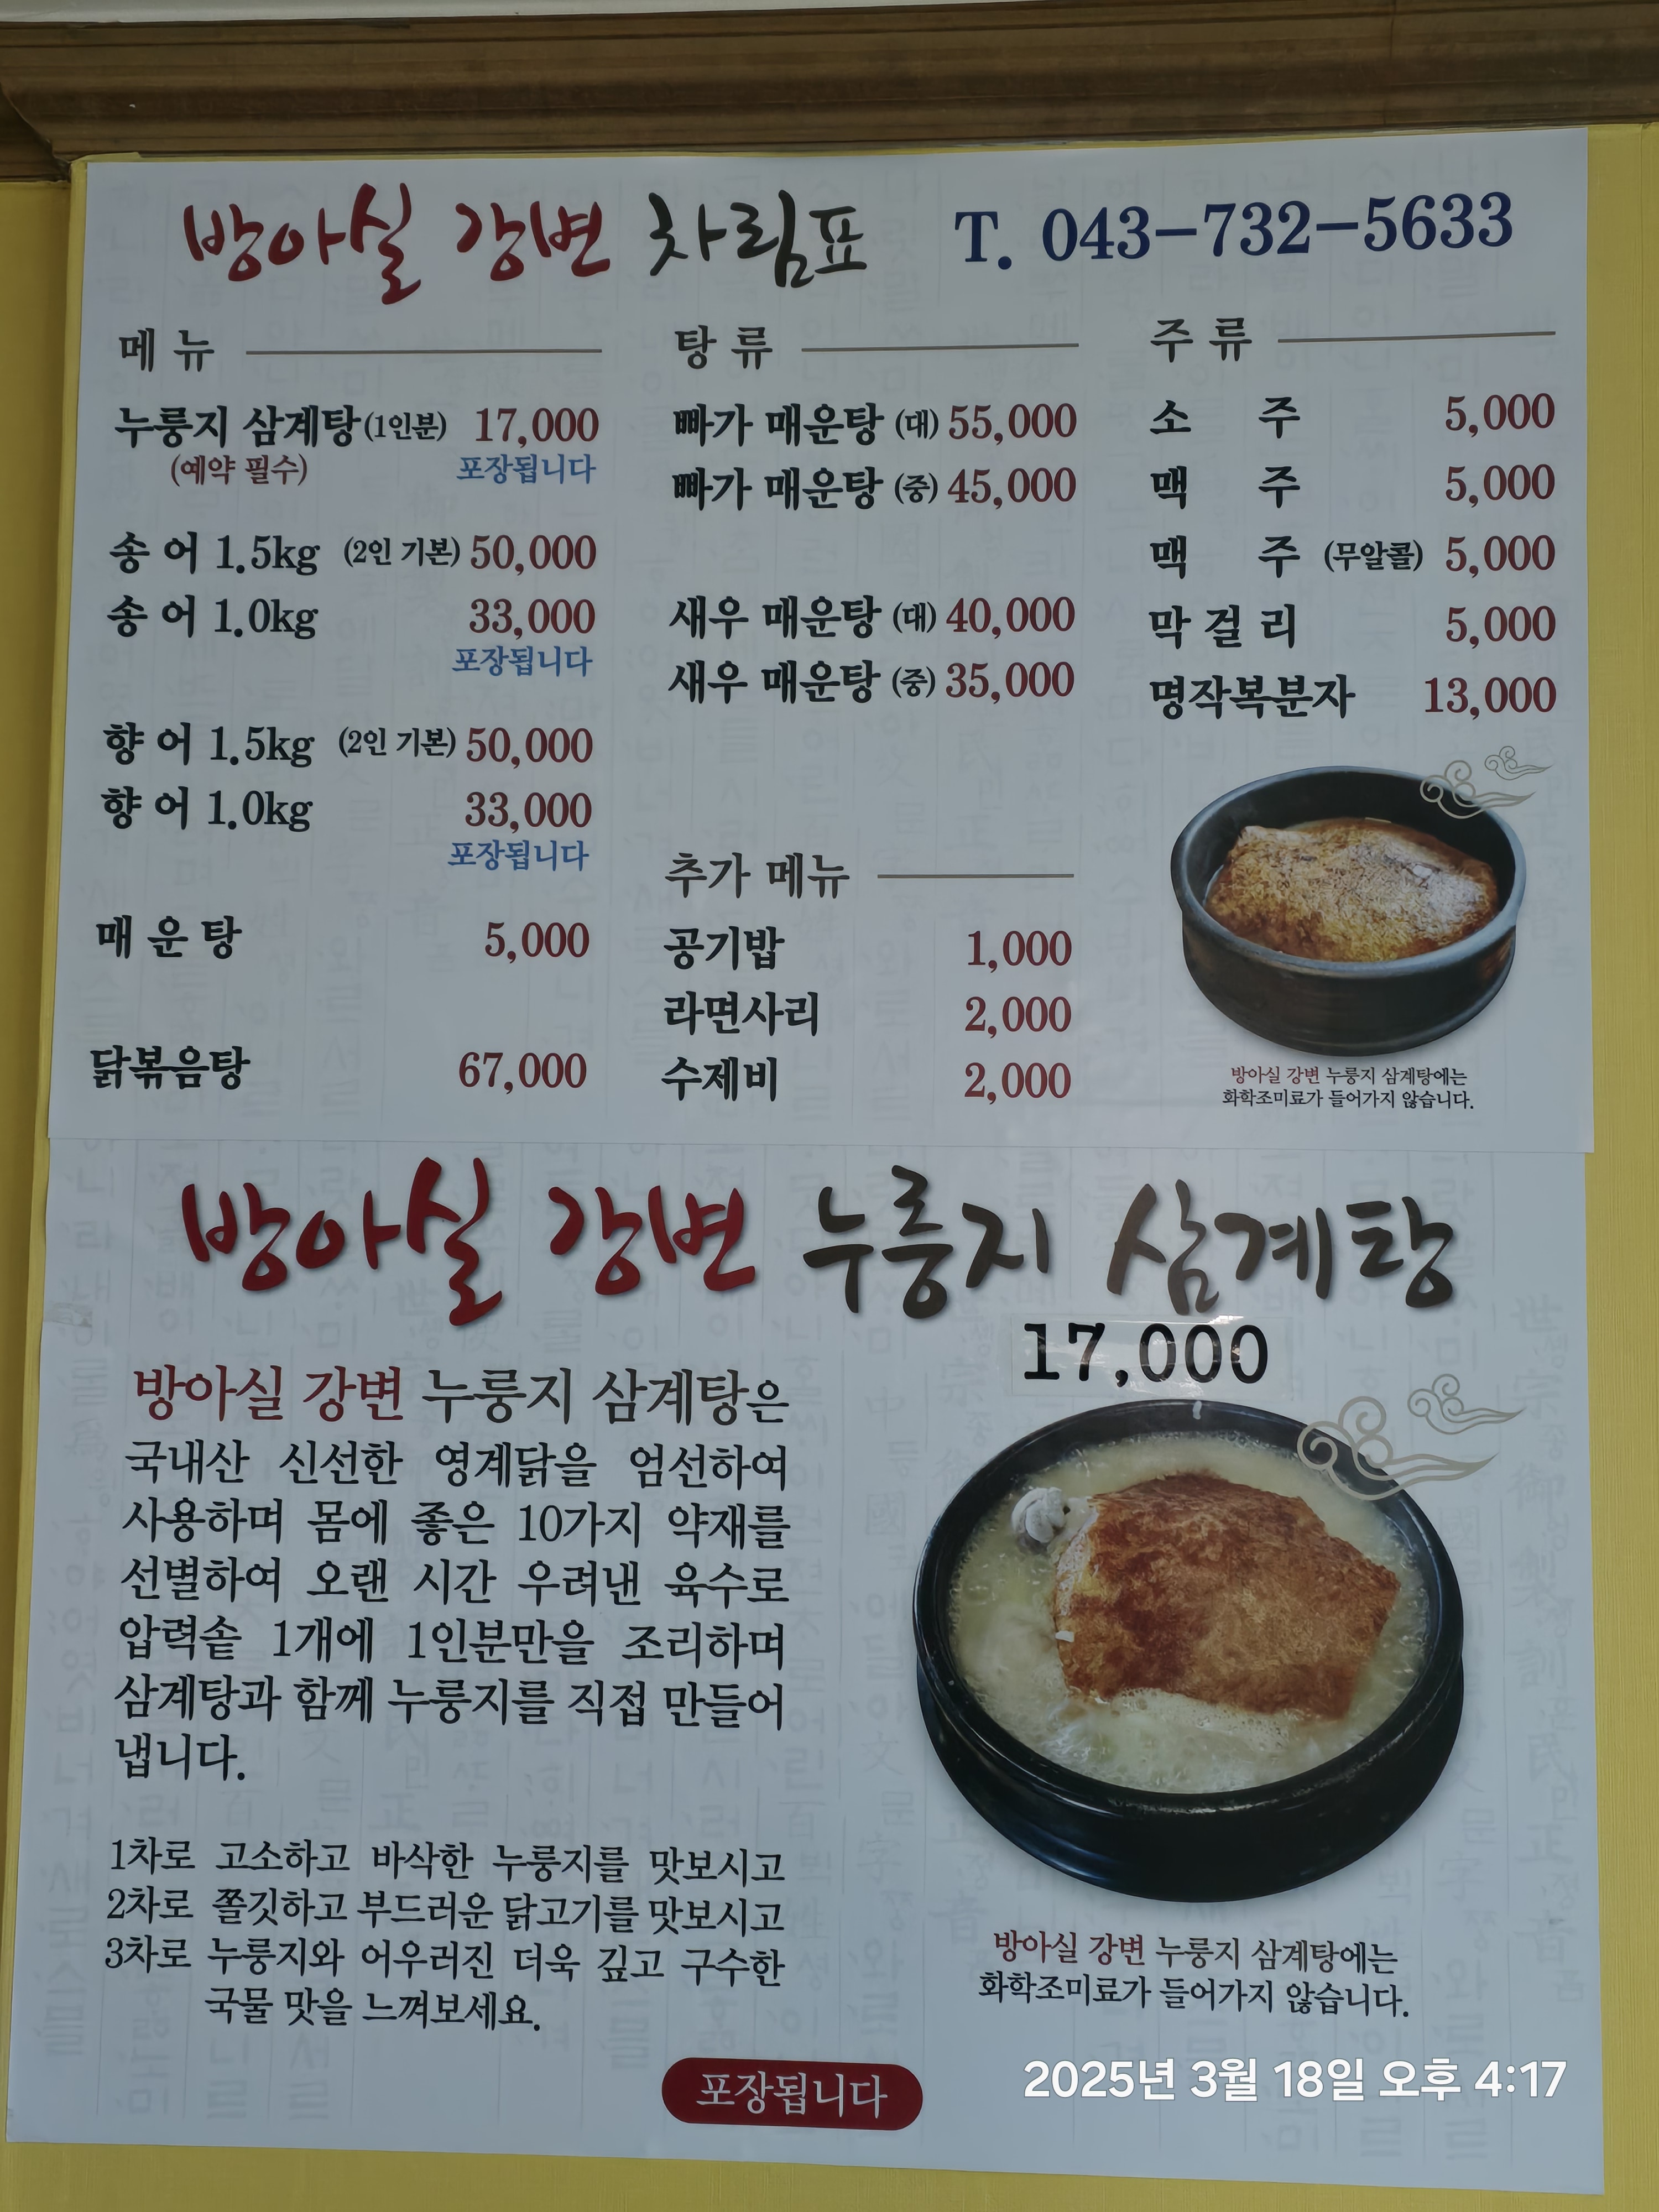 방아실 강변 차림표 T. 043-732-5633
메 뉴
누룽지 삼계탕(1인분) 17,000
(예약 필수) 포장됩니다
송 어 1.5kg (2인 기본) 50,000
송 어 1.0kg 33,000
포장됩니다
향 어 1.5kg (2인 기본) 50,000
향 어 1.0kg 33,000
포장됩니다
매 운 탕 5,000
닭볶음탕 67,000
탕 류
빠가 매운탕 (대) 55,000
빠가 매운탕 (중) 45,000
새우 매운탕 (대) 40,000
새우 매운탕 (중) 35,000
추가 메뉴
공기밥 1,000
라면사리 2,000
수제비 2,000
주 류
소 주 5,000
맥 주 5,000
맥 주 (무알콜) 5,000
막 걸 리 5,000
명작복분자 13,000
방아실 강변 누룽지 삼계탕에는
화학조미료가 들어가지 않습니다.
방아실 강변 누룽지 삼계탕
17,000
방아실 강변 누룽지 삼계탕은
국내산 신선한 영계닭을 엄선하여
사용하며 몸에 좋은 10가지 약재를
선별하여 오랜 시간 우려낸 육수로
압력솥 1개에 1인분만을 조리하며
삼계탕과 함께 누룽지를 직접 만들어
냅니다.
1차로 고소하고 바삭한 누룽지를 맛보시고
2차로 쫄깃하고 부드러운 닭고기를 맛보시고
3차로 누룽지와 어우러진 더욱 깊고 구수한
국물 맛을 느껴보세요.
방아실 강변 누룽지 삼계탕에는
화학조미료가 들어가지 않습니다.
포장됩니다
2025년 3월 18일 오후 4:17